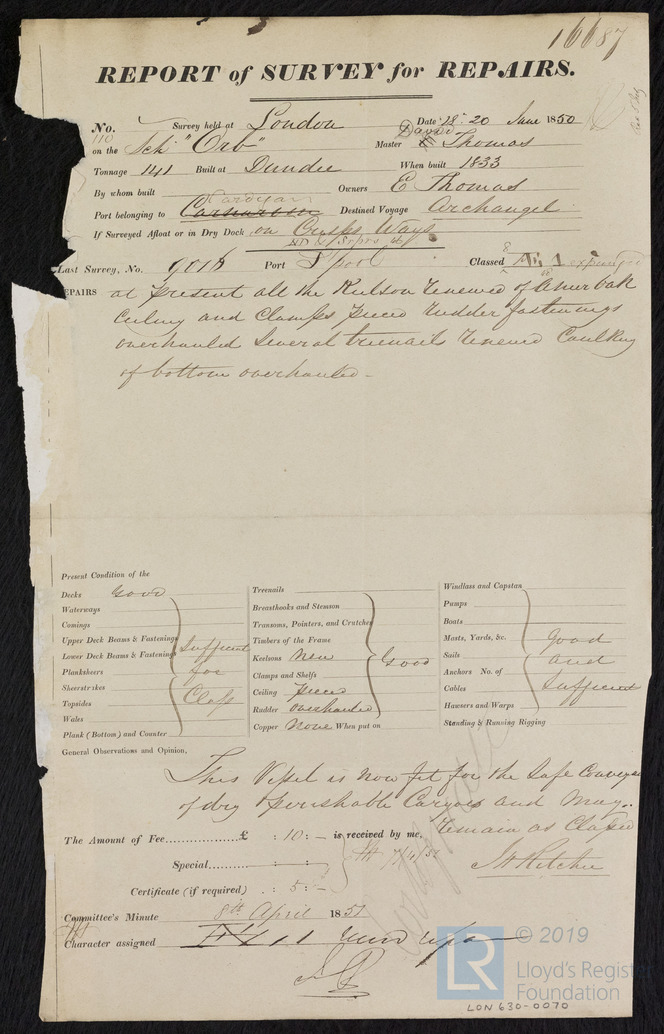 16687
REPORT of SURVEY for REPAIRS.
No. Survey held at London Date 18-20 June 1850
110
on the Sch "Orb" Master David Thomas
Tonnage 141 Built at Dundee When built 1833
By whom built Owners E Thomas
Port belonging to Carnarvon Destined Voyage Archangel
If Surveyed Afloat or in Dry Dock on Crisps Ways
Last Survey, No. 9018 Port L'pool Classed 8 Æ 1 expunged
EPAIRS at present all the Keelson renewed of Amer Oak
Ceiling and Clamps pieced rudder fastenings
overhauled Several treenails renewed Caulking
of bottom overhauled -
Present Condition of the
Decks Good
Waterways
Comings
Upper Deck Beams & Fastenings
Lower Deck Beams & Fastenings
Planksheers
Sheerstrakes
Topsides
Wales
Plank (Bottom) and Counter
Sufficient
for
Class
Treenails
Breasthooks and Stemson
Transoms, Pointers, and Crutches
Timbers of the Frame
Keelsons New
Clamps and Shelfs
Ceiling pieced
Rudder overhauled
Copper None When put on
Good
Windlass and Capstan
Pumps
Boats
Masts, Yards, &c.
Sails
Anchors No. of
Cables
Hawsers and Warps
Standing & Running Rigging
Good
and
Sufficient
General Observations and Opinion,
This Vessel is now fit for the Safe Conveya
of dry & perishable Cargoes and may
remain as Classed
The Amount of Fee £ : 10 : - is received by me,
Special : :
Certificate (if required) : 5 : -
J H Ritchie
Committee's Minute 8th April 1851
Character assigned
© 2019
LR
Lloyd's Register
Foundation
LON 630-0070